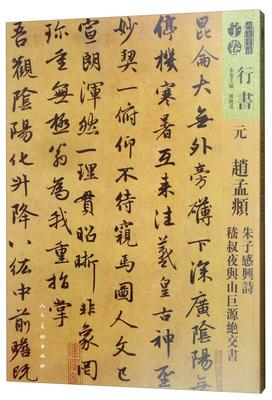 子卷
行書
元
趙孟頫
朱子感興詩
嵇叔夜與山巨源絕交書
崑崙大無外旁礴下深廣陰陽無
停機寒暑互来往羲皇古神聖
妙契一俯仰不待窺馬圖人文已
宣朗渾然一理貫昭晰非象罔
珍重無極翁為我重指掌
吾觀陰陽化升降八紘中前瞻既
人民美術出版社